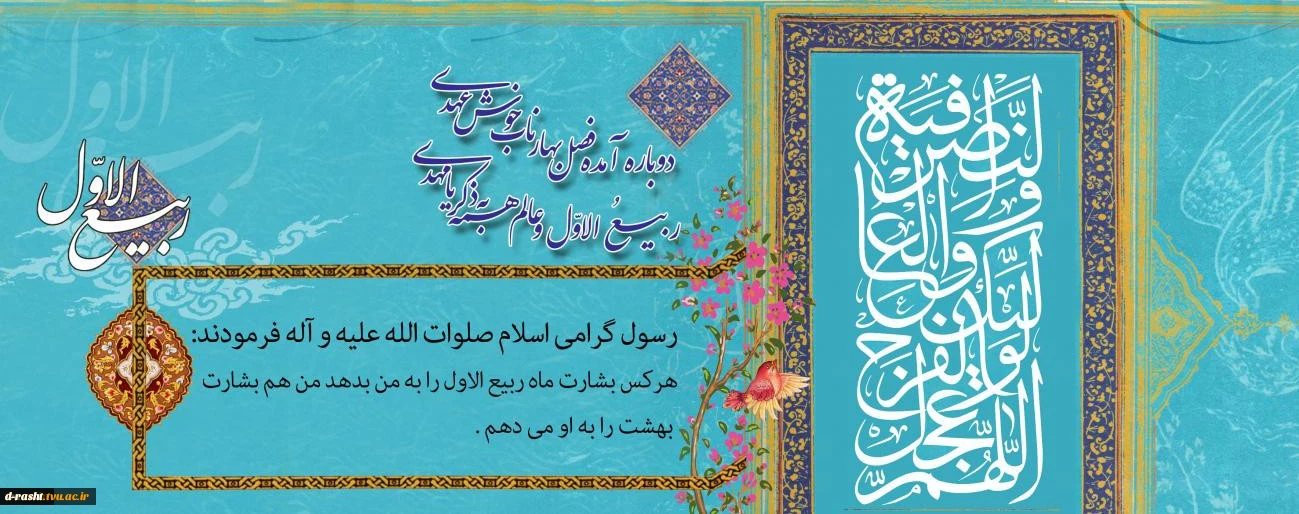 دوباره آمده فصل بهار ناب خوش عهدی
ربیعُ الاوّل و عالم همه به ذکر یا مهدی
ربیع الاوّل
رسول گرامی اسلام صلوات الله علیه و آله فرمودند:
هرکس بشارت ماه ربیع الاول را به من بدهد من هم بشارت
بهشت را به او می دهم .
اللّهم عجّل لولیّک الفرج والعافیة والنّصر
ربیع الاوّل
d-rasht.tvu.ac.ir